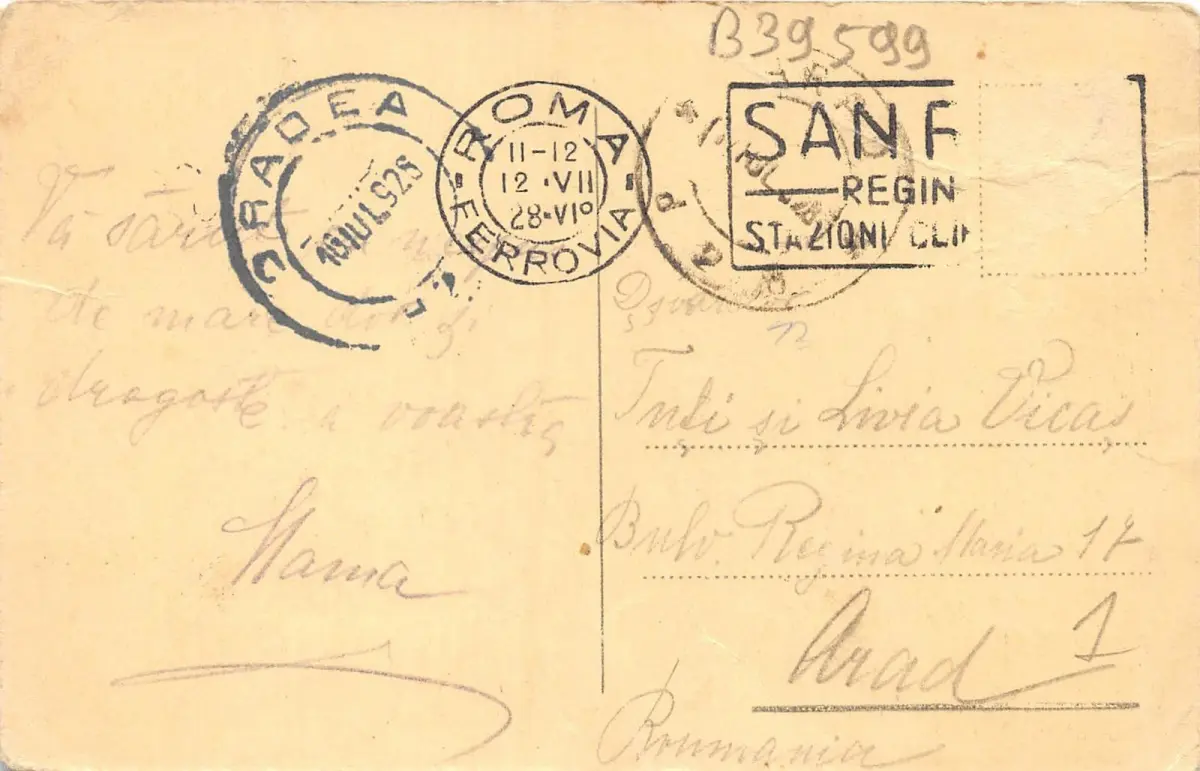 B39599
ORADEA
16 IUL 928
ROMA
11-12
12 ·VII
28·VIº
FERROVIA
SAN R
REGIN
STAZIONI CLI
Vă sărut
de mare dor și
dragoste a voastră
Mama
Tuți și Livia Vicaș
Bulv. Regina Maria 17
Arad 1
Roumania